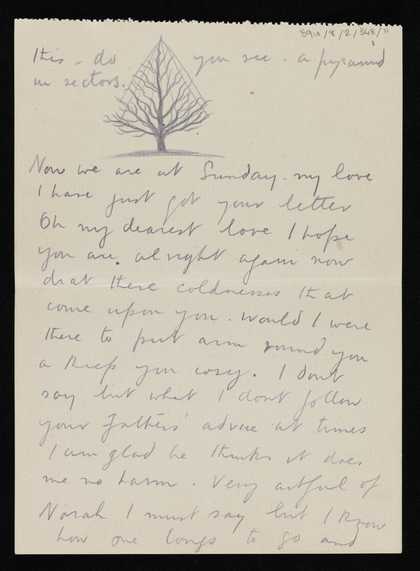 this - do you see - a pyramid
in sectors.
Now we are at Sunday. my love
I have just got your letter
Oh my dearest love I hope
you are alright again now
drat these coldnesses that
come upon you. Would I were
there to put arm round you
& keep you cosy. I don't
say but what I don't follow
your Fathers' advice at times
I am glad he thinks it does
me no harm. Very artful of
Norah I must say but I know
how one longs to go and